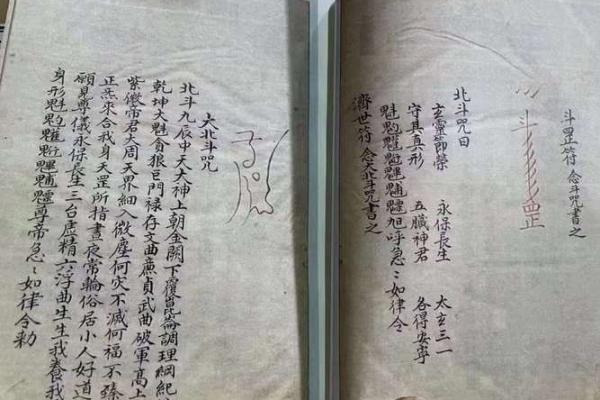 斗罡符 念斗咒書之
斗罡
北斗咒曰
玄靈節榮 永保長生 太玄三一
守其真形 五臟神君 各得安寧
魁 旭呼急〻如律令
濟世符 念大北斗咒書之
大北斗咒
北斗九辰中天大神上朝金闕下覆崑崙調理綱紀
乾坤大魁貪狼巨門祿存文曲廉貞武曲破軍高上
紫微帝君大周天界細入微塵何灾不滅何福不臻
正炁來合我身天罡所指晝夜常輪俗居小人好道
願見尊儀永保長生三台虛精六淳曲生生我養我
身形魁 尊帝急〻如律令勅